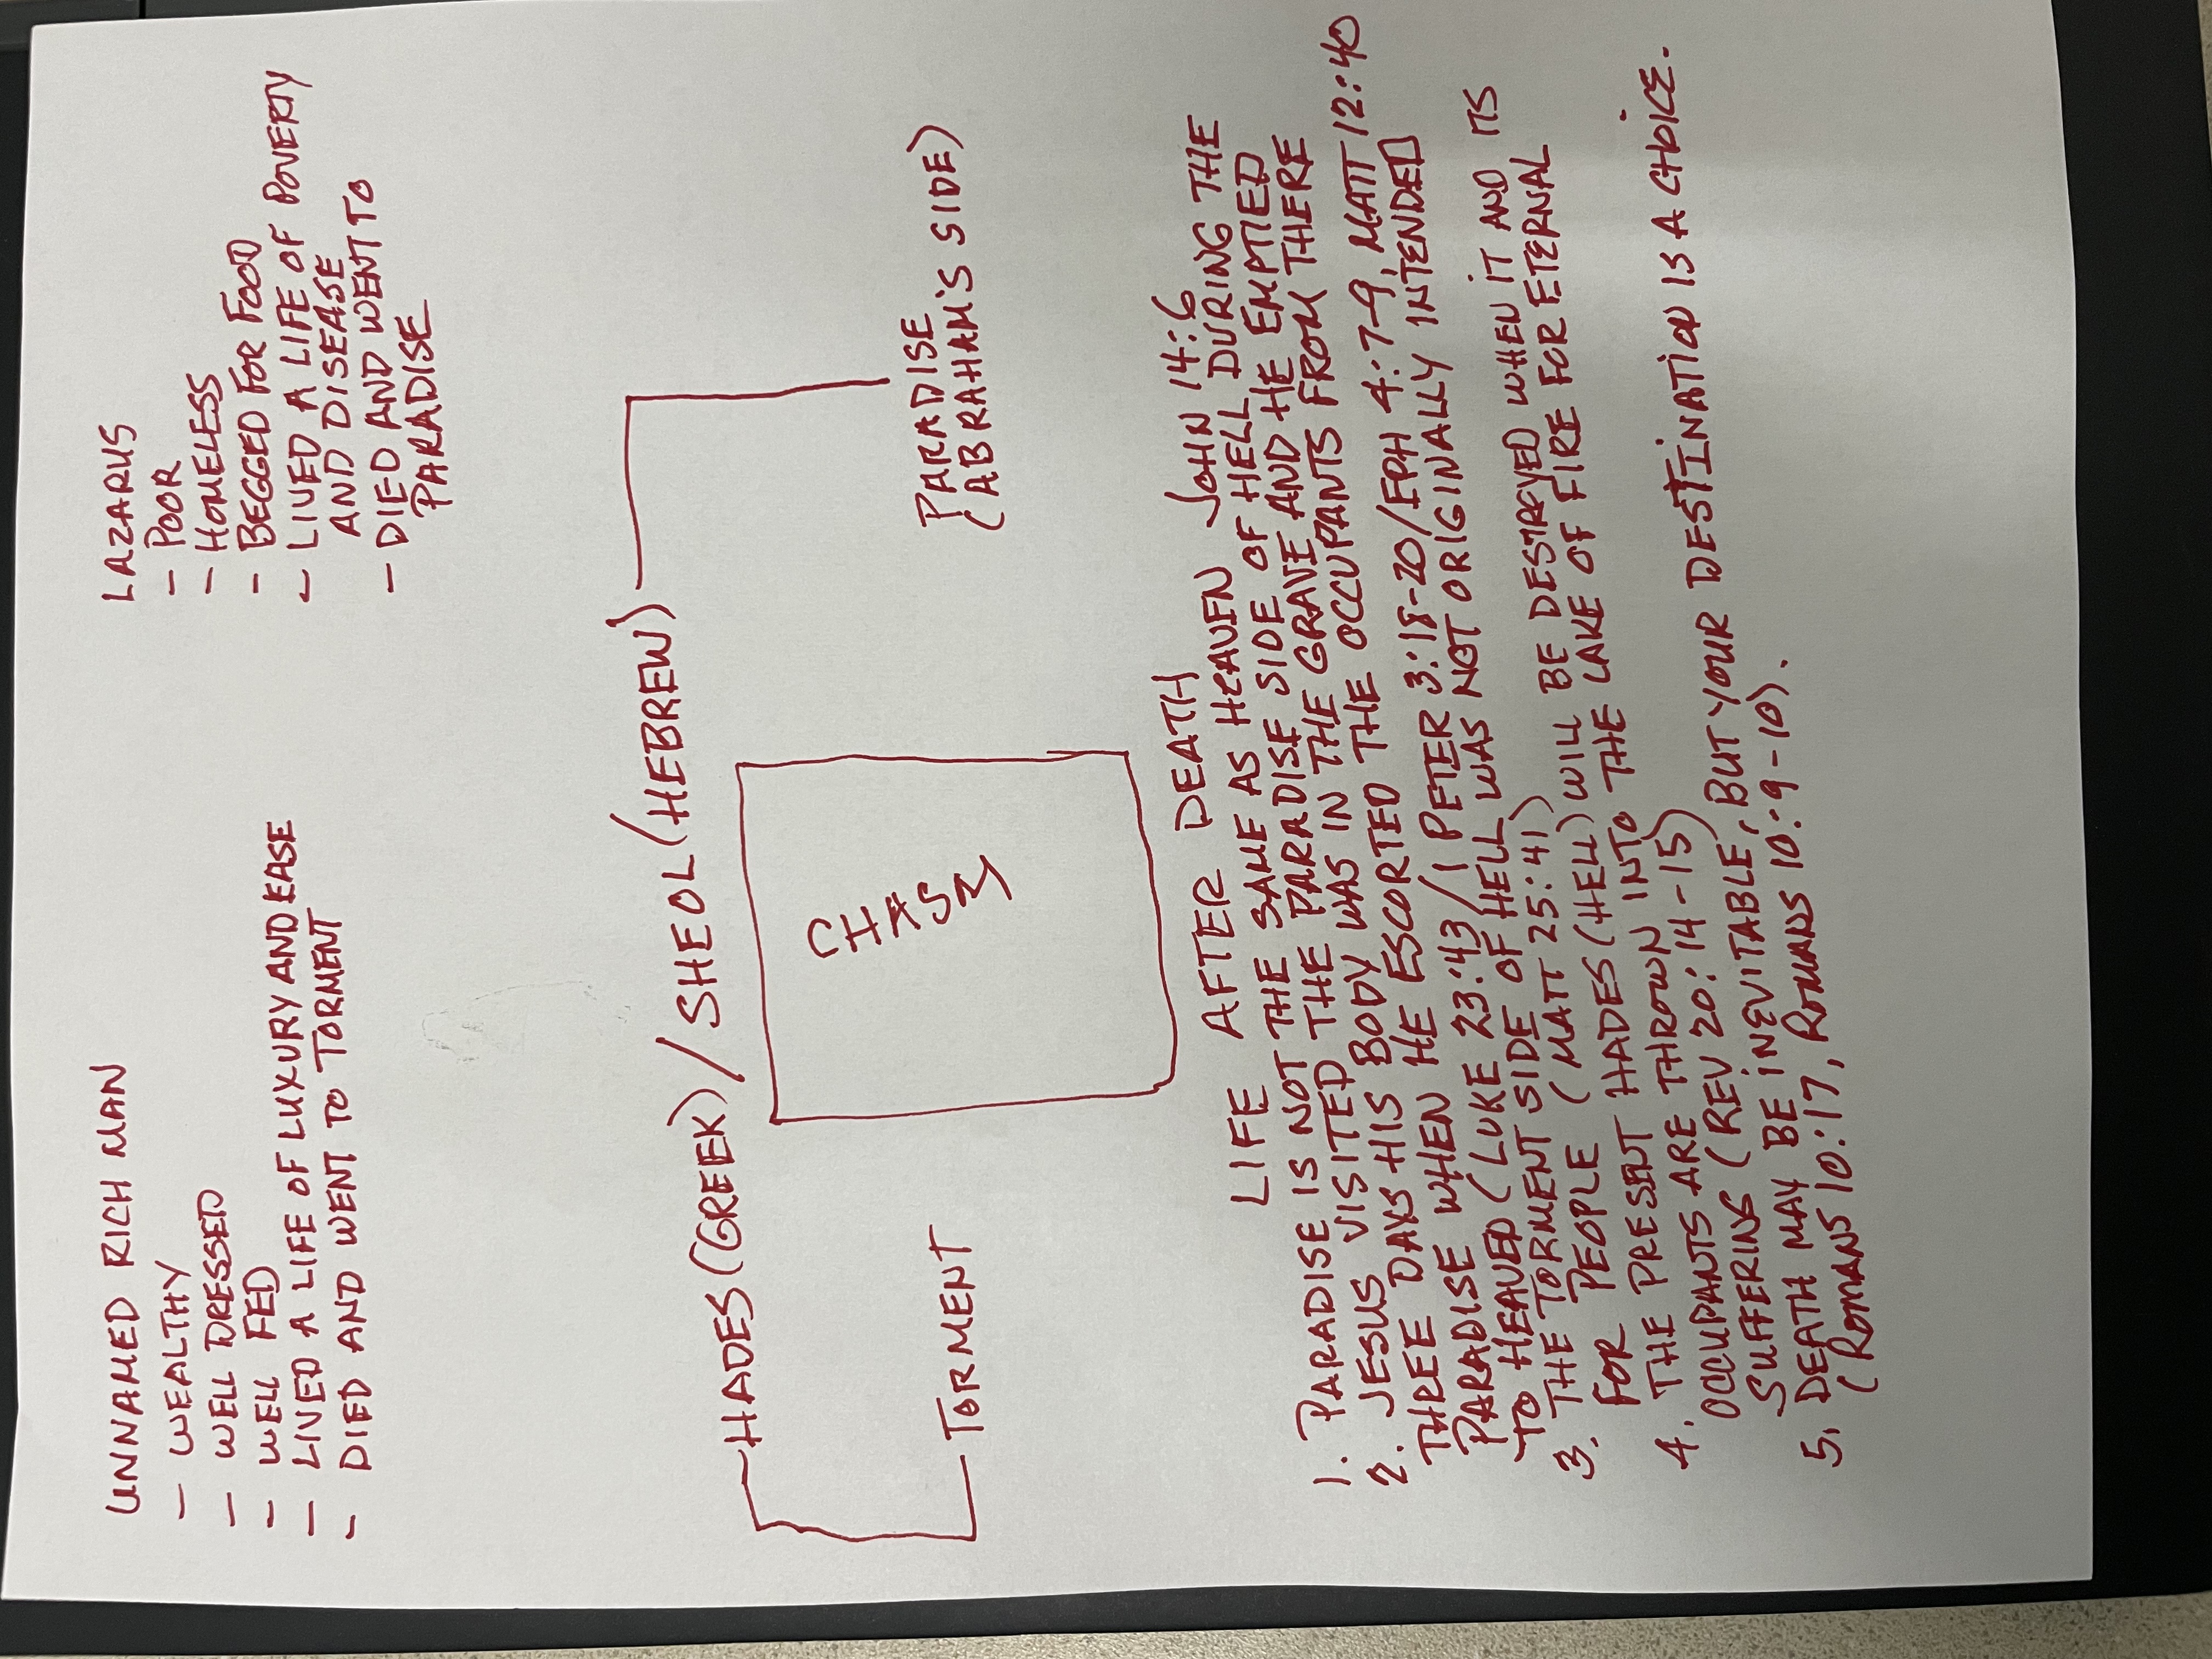 UNNAMED RICH MAN
- WEALTHY
- WELL DRESSED
- WELL FED
- LIVED A LIFE OF LUXURY AND EASE
- DIED AND WENT TO TORMENT
LAZARUS
- POOR
- HOMELESS
- BEGGED FOR FOOD
- LIVED A LIFE OF POVERTY
AND DISEASE
- DIED AND WENT TO
PARADISE
HADES (GREEK) / SHEOL (HEBREW)
TORMENT
CHASM
PARADISE
(ABRAHAM'S SIDE)
LIFE AFTER DEATH
1. PARADISE IS NOT THE SAME AS HEAVEN JOHN 14:6
2. JESUS VISITED THE PARADISE SIDE OF HELL DURING THE
THREE DAYS HIS BODY WAS IN THE GRAVE AND HE EMPTIED
PARADISE WHEN HE ESCORTED THE OCCUPANTS FROM THERE
TO HEAVEN (LUKE 23:43/1 PETER 3:18-20/EPH 4:7-9, MATT 12:40
3. THE TORMENT SIDE OF HELL WAS NOT ORIGINALLY INTENDED
FOR PEOPLE (MATT 25:41)
4. THE PRESENT HADES (HELL) WILL BE DESTROYED WHEN IT AND ITS
OCCUPANTS ARE THROWN INTO THE LAKE OF FIRE FOR ETERNAL
SUFFERING (REV 20:14-15)
5. DEATH MAY BE INEVITABLE, BUT YOUR DESTINATION IS A CHOICE.
(ROMANS 10:17, ROMANS 10:9-10).